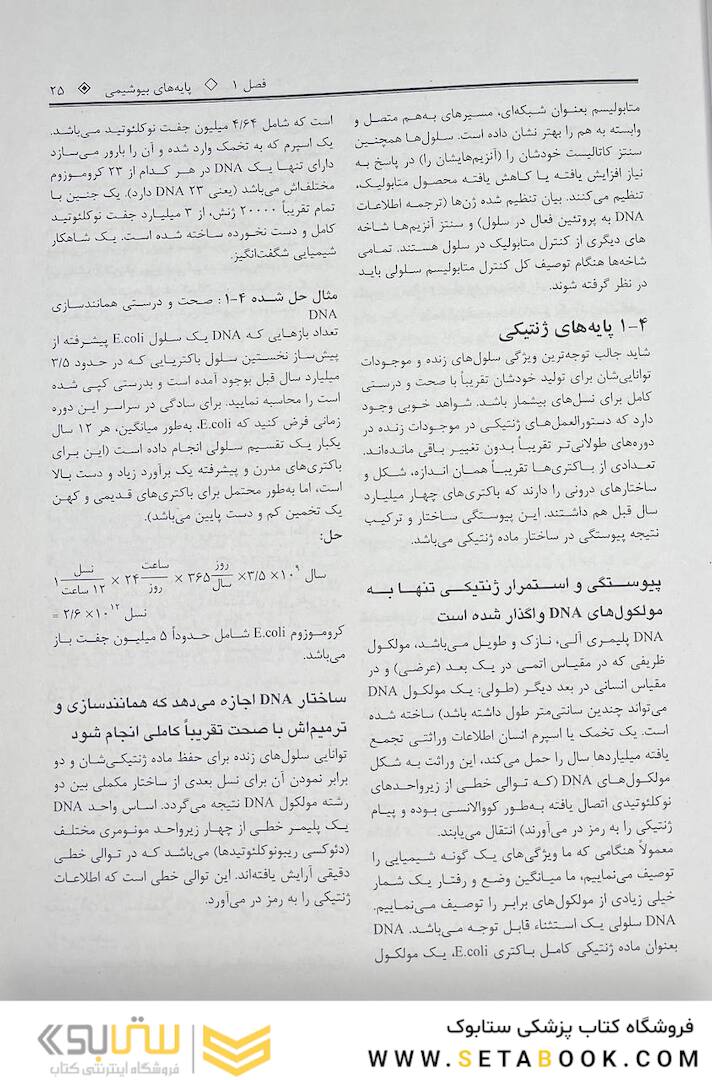 فصل ۱ ◇ پایه‌های بیوشیمی ◈ ۲۵
متابولیسم بعنوان شبکه‌ای، مسیرهای به‌هم متصل و
وابسته به هم را بهتر نشان داده است. سلول‌ها همچنین
سنتز کاتالیست خودشان (آنزیم‌هایشان را) در پاسخ به
نیاز افزایش یافته یا کاهش یافته محصول متابولیک،
تنظیم می‌کنند. بیان تنظیم شده ژن‌ها (ترجمه اطلاعات
DNA به پروتئین فعال در سلول) و سنتز آنزیم‌ها شاخه
های دیگری از کنترل متابولیک در سلول هستند. تمامی
شاخه‌ها هنگام توصیف کل کنترل متابولیسم سلولی باید
در نظر گرفته شوند.
۱-۴ پایه‌های ژنتیکی
شاید جالب توجه‌ترین ویژگی سلول‌های زنده و موجودات
توانایی‌شان برای تولید خودشان تقریباً با صحت و درستی
کامل برای نسل‌های بیشمار باشد. شواهد خوبی وجود
دارد که دستورالعمل‌های ژنتیکی در موجودات زنده در
دوره‌های طولانی‌تر تقریباً بدون تغییر باقی مانده‌اند.
تعدادی از باکتری‌ها تقریباً همان اندازه، شکل و
ساختارهای درونی را دارند که باکتری‌های چهار میلیارد
سال قبل هم داشتند. این پیوستگی ساختار و ترکیب
نتیجه پیوستگی در ساختار ماده ژنتیکی می‌باشد.
پیوستگی و استمرار ژنتیکی تنها به
مولکول‌های DNA واگذار شده است
DNA پلیمری آلی، نازک و طویل می‌باشد، مولکول
ظریفی که در مقیاس اتمی در یک بعد (عرضی) و در
مقیاس انسانی در بعد دیگر (طولی: یک مولکول DNA
می‌تواند چندین سانتی‌متر طول داشته باشد) ساخته شده
است. یک تخمک یا اسپرم انسان اطلاعات وراثتی تجمع
یافته میلیاردها سال را حمل می‌کند، این وراثت به شکل
مولکول‌های DNA (که توالی خطی از زیرواحدهای
نوکلئوتیدی اتصال یافته به‌طور کووالانسی بوده و پیام
ژنتیکی را به رمز در می‌آورند) انتقال می‌یابند.
معمولاً هنگامی که ما ویژگی‌های یک گونه شیمیایی را
توصیف می‌نماییم، ما میانگین وضع و رفتار یک شمار
خیلی زیادی از مولکول‌های برابر را توصیف می‌نماییم.
DNA سلولی یک استثناء قابل توجه می‌باشد. DNA
بعنوان ماده ژنتیکی کامل باکتری E.coli، یک مولکول
است که شامل ۴/۶۴ میلیون جفت نوکلئوتید می‌باشد.
یک اسپرم که به تخمک وارد شده و آن را بارور می‌سازد
دارای تنها یک DNA در هر کدام از ۲۳ کروموزوم
مختلف‌اش می‌باشد (یعنی ۲۳ DNA دارد). یک جنین با
تمام تقریباً ۲۰۰۰۰ ژنش، از ۳ میلیارد جفت نوکلئوتید
کامل و دست نخورده ساخته شده است. یک شاهکار
شیمیایی شگفت‌انگیز.
مثال حل شده ۴-۱: صحت و درستی همانندسازی
DNA
تعداد بازهایی که DNA یک سلول E.coli پیشرفته از
پیش‌ساز نخستین سلول باکتریایی که در حدود ۳/۵
میلیارد سال قبل بوجود آمده است و بدرستی کپی شده
است را محاسبه نمایید. برای سادگی در سراسر این دوره
زمانی فرض کنید که E.coli، به‌طور میانگین، هر ۱۲ سال
یکبار یک تقسیم سلولی انجام داده است (این برای
باکتری‌های مدرن و پیشرفته یک برآورد زیاد و دست بالا
است، اما به‌طور محتمل برای باکتری‌های قدیمی و کهن
یک تخمین کم و دست پایین می‌باشد).
حل:
۱ نسل/۱۲ ساعت × ۲۴ ساعت/روز × ۳۶۵ روز/سال × ۳/۵×۱۰⁹ سال
= ۲/۶ ×۱۰¹² نسل
کروموزوم E.coli شامل حدوداً ۵ میلیون جفت باز
می‌باشد.
ساختار DNA اجازه می‌دهد که همانندسازی و
ترمیم‌اش با صحت تقریباً کاملی انجام شود
توانایی سلول‌های زنده برای حفظ ماده ژنتیکی‌شان و دو
برابر نمودن آن برای نسل بعدی از ساختار مکملی بین دو
رشته مولکول DNA نتیجه می‌گردد. اساس واحد DNA
یک پلیمر خطی از چهار زیرواحد مونومری مختلف
(دئوکسی ریبونوکلئوتیدها) می‌باشد که در توالی خطی
دقیقی آرایش یافته‌اند. این توالی خطی است که اطلاعات
ژنتیکی را به رمز در می‌آورد.
فروشگاه کتاب پزشکی ستابوک
WWW.SETABOOK.COM
ستابوک
فروشگاه اینترنتی کتاب